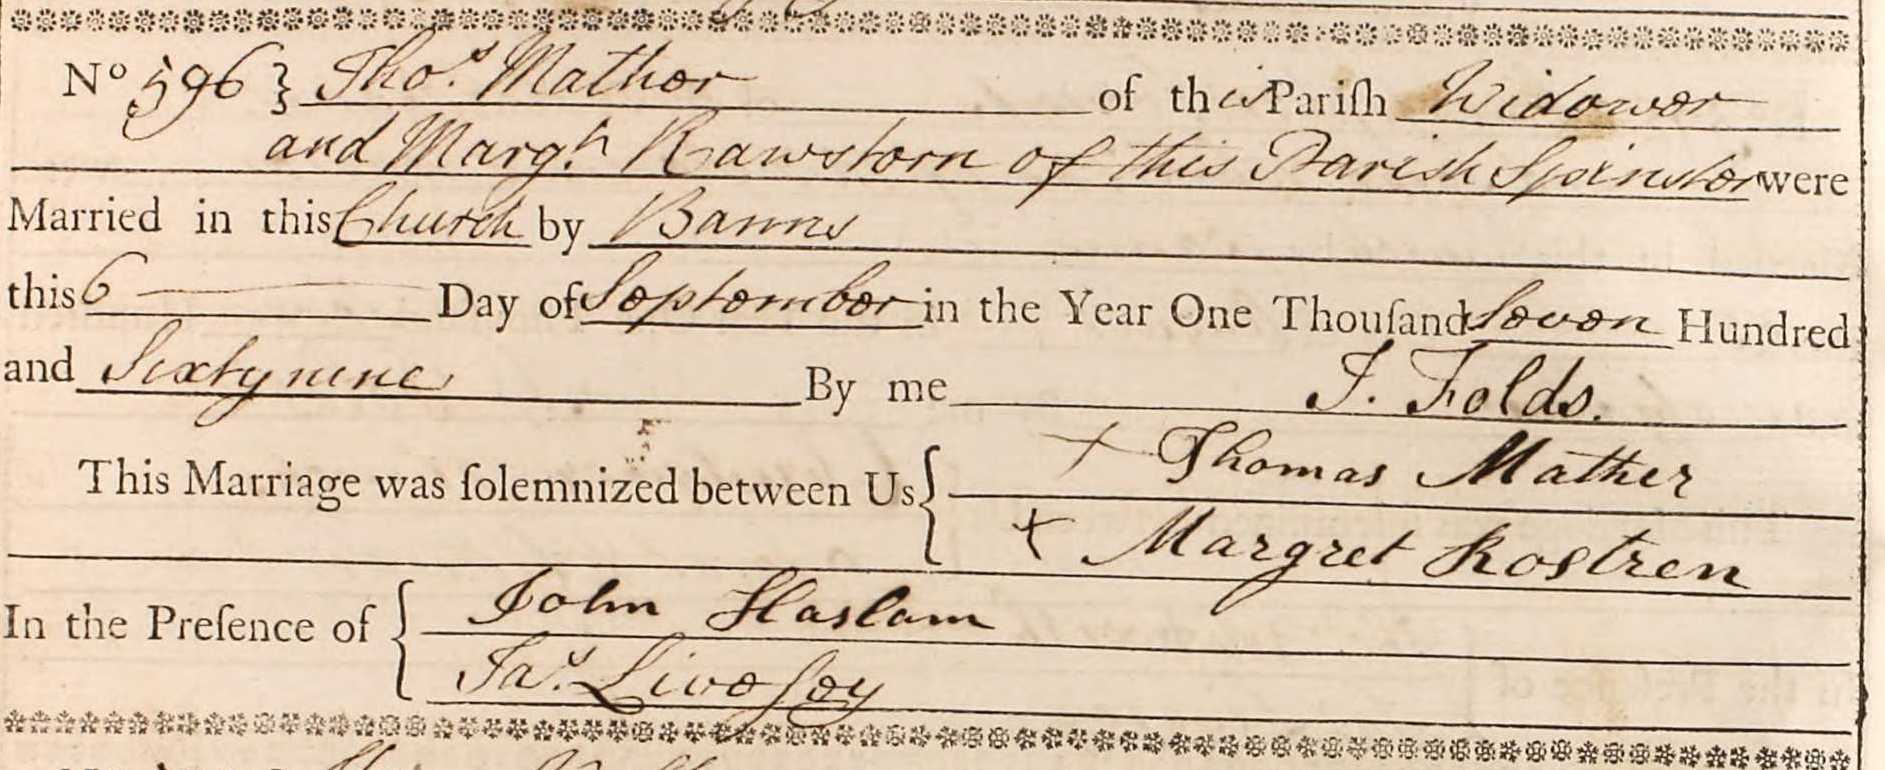 No 596 } Thos. Mather of this Pariſh Widower
and Margt. Rawstorn of this Parish Spinster were
Married in this Church by Banns
this 6 Day of September in the Year One Thouſand Seven Hundred
and Sixty nine By me J. Folds.
This Marriage was ſolemnized between Us { + Thomas Mather
+ Margret Rostren
In the Preſence of { John Haslam
Jas. Liveſey